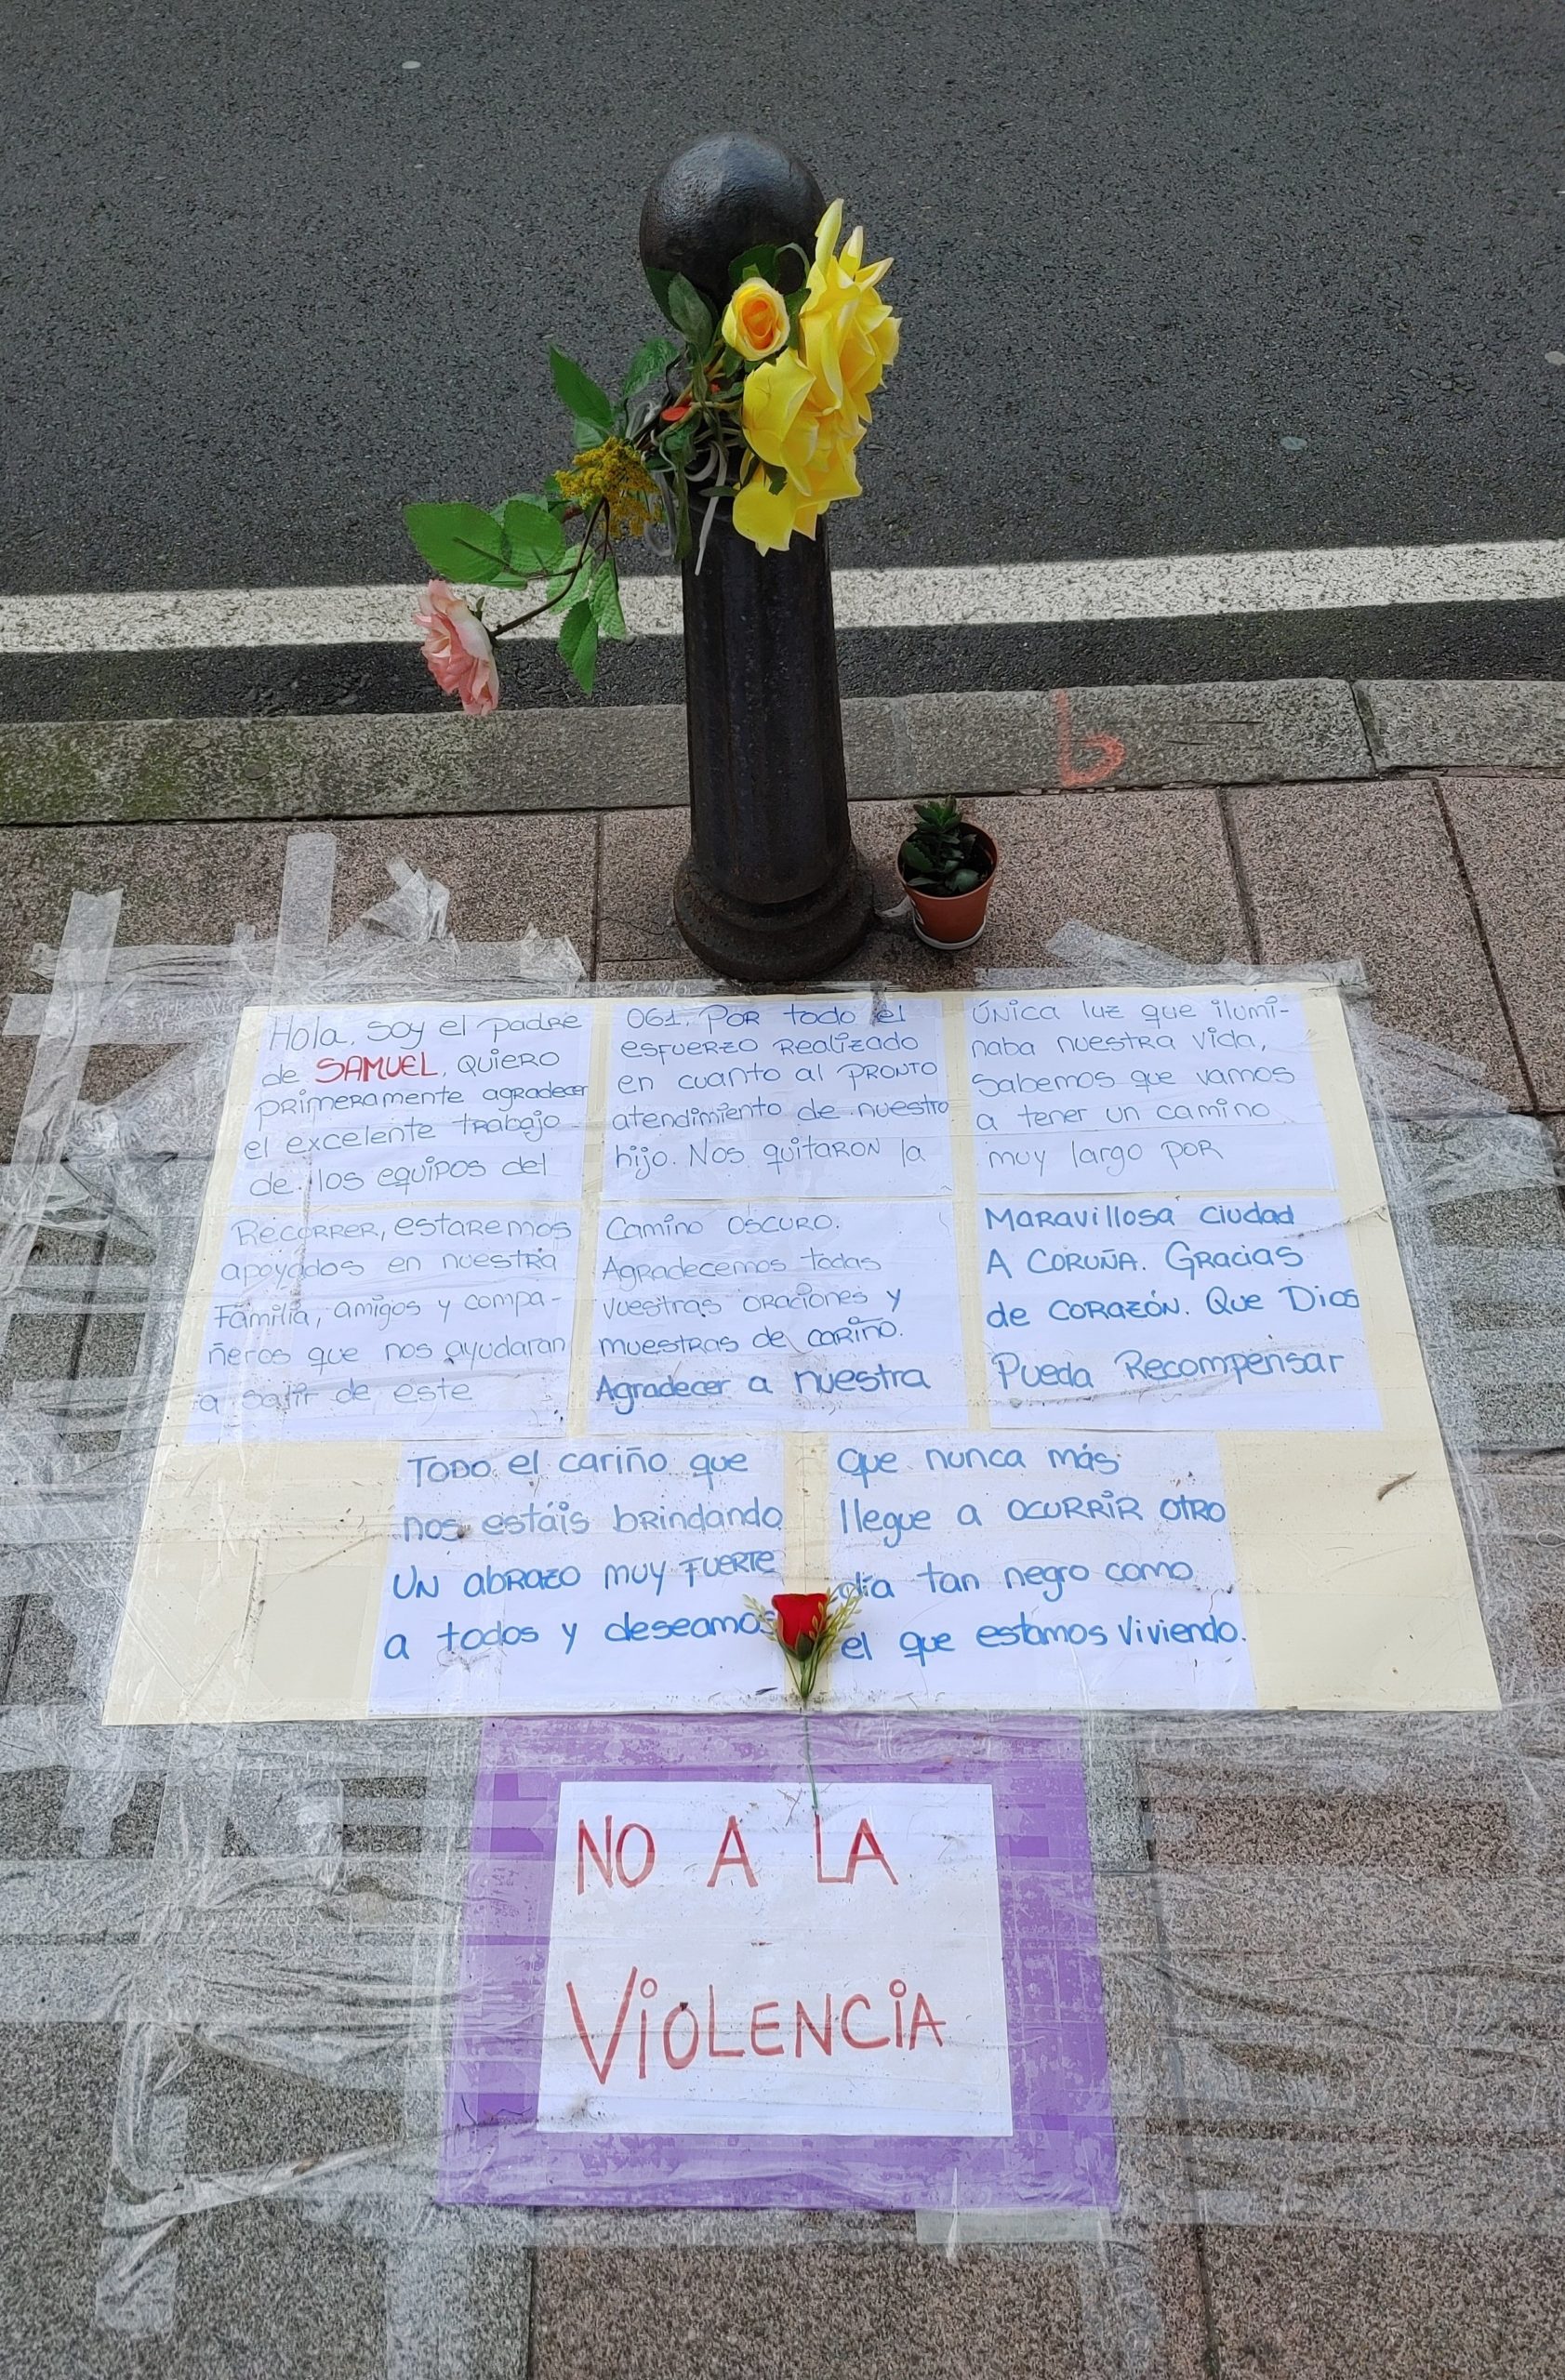 Hola, soy el padre
de SAMUEL, quiero
primeramente agradecer
el excelente trabajo
de los equipos del
061. Por todo el
esfuerzo realizado
en cuanto al pronto
atendimiento de nuestro
hijo. Nos quitaron la
única luz que ilumi-
naba nuestra vida,
Sabemos que vamos
a tener un camino
muy largo por
Recorrer, estaremos
apoyados en nuestra
Familia, amigos y compa-
ñeros que nos ayudaran
a salir de este
Camino oscuro.
Agradecemos todas
vuestras oraciones y
muestras de cariño.
Agradecer a nuestra
Maravillosa ciudad
A Coruña. Gracias
de corazón. Que Dios
Pueda Recompensar
Todo el cariño que
nos estáis brindando
Un abrazo muy fuerte
a todos y deseamos
que nunca más
llegue a ocurrir otro
día tan negro como
el que estamos viviendo.
NO A LA
VIOLENCIA